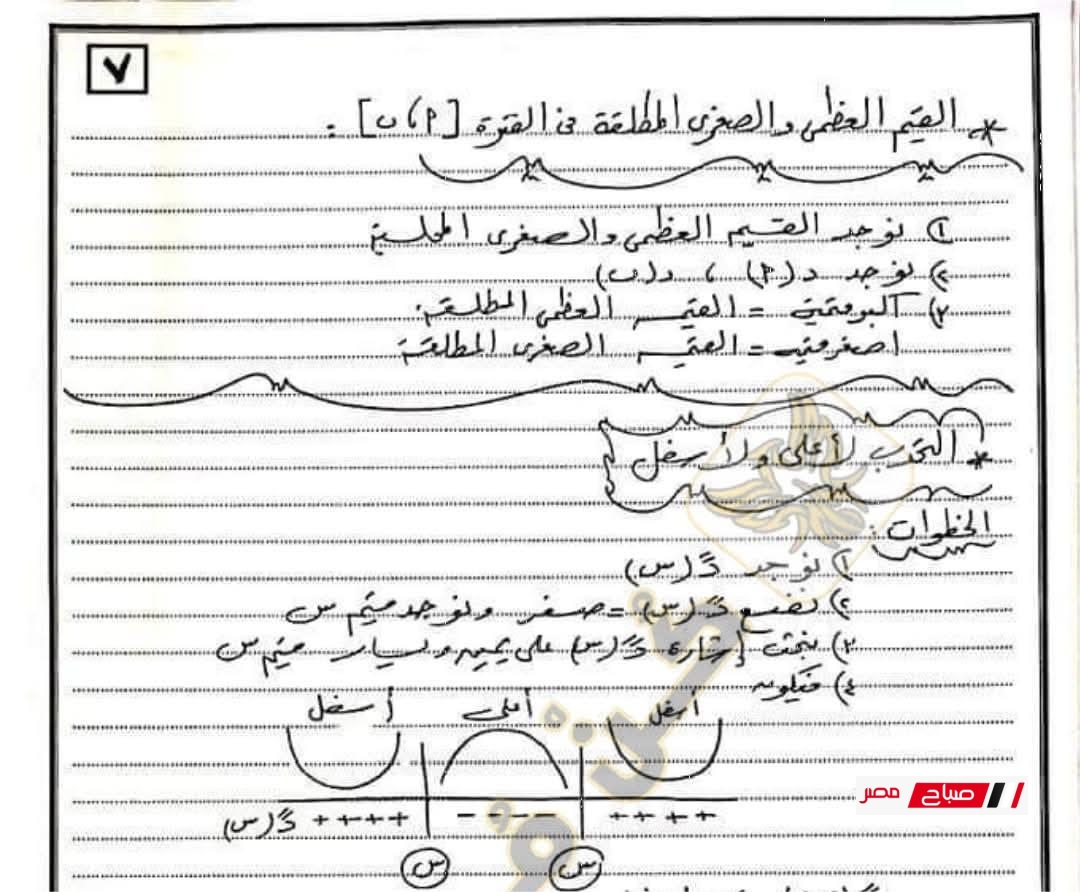 ٧
* القيم العظمى والصغرى المطلقة فى الفترة [ ٩ ، ب ] :
١) نوجد القيم العظمى والصغرى المحلية
٢) نوجد د(٩) ، د(ب)
٣) أكبر قيمة = القيمة العظمى المطلقة
اصغر قيمة = القيمة الصغرى المطلقة
* التحدب لأعلى ولأسفل
الخطوات :
١) نوجد دً(س)
٢) نضع دً(س) = صفر ونوجد قيم س
٣) نبحث إشارة دً(س) على يمين ويسار قيم س
٤) فيكون
أسفل أعلى أسفل
++++ ---- ++++ دً(س)
س س
صباح مصر